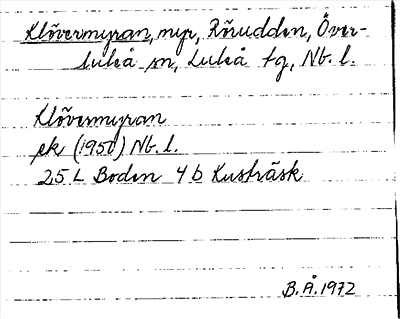 Klövermyran, myr, Rörudden, Över-
luleå sn, Luleå tg, Nb. l.
Klövermyran
ek (1950) Nb. l.
25 L Boden 4 b Kusträsk
B. Å. 1972